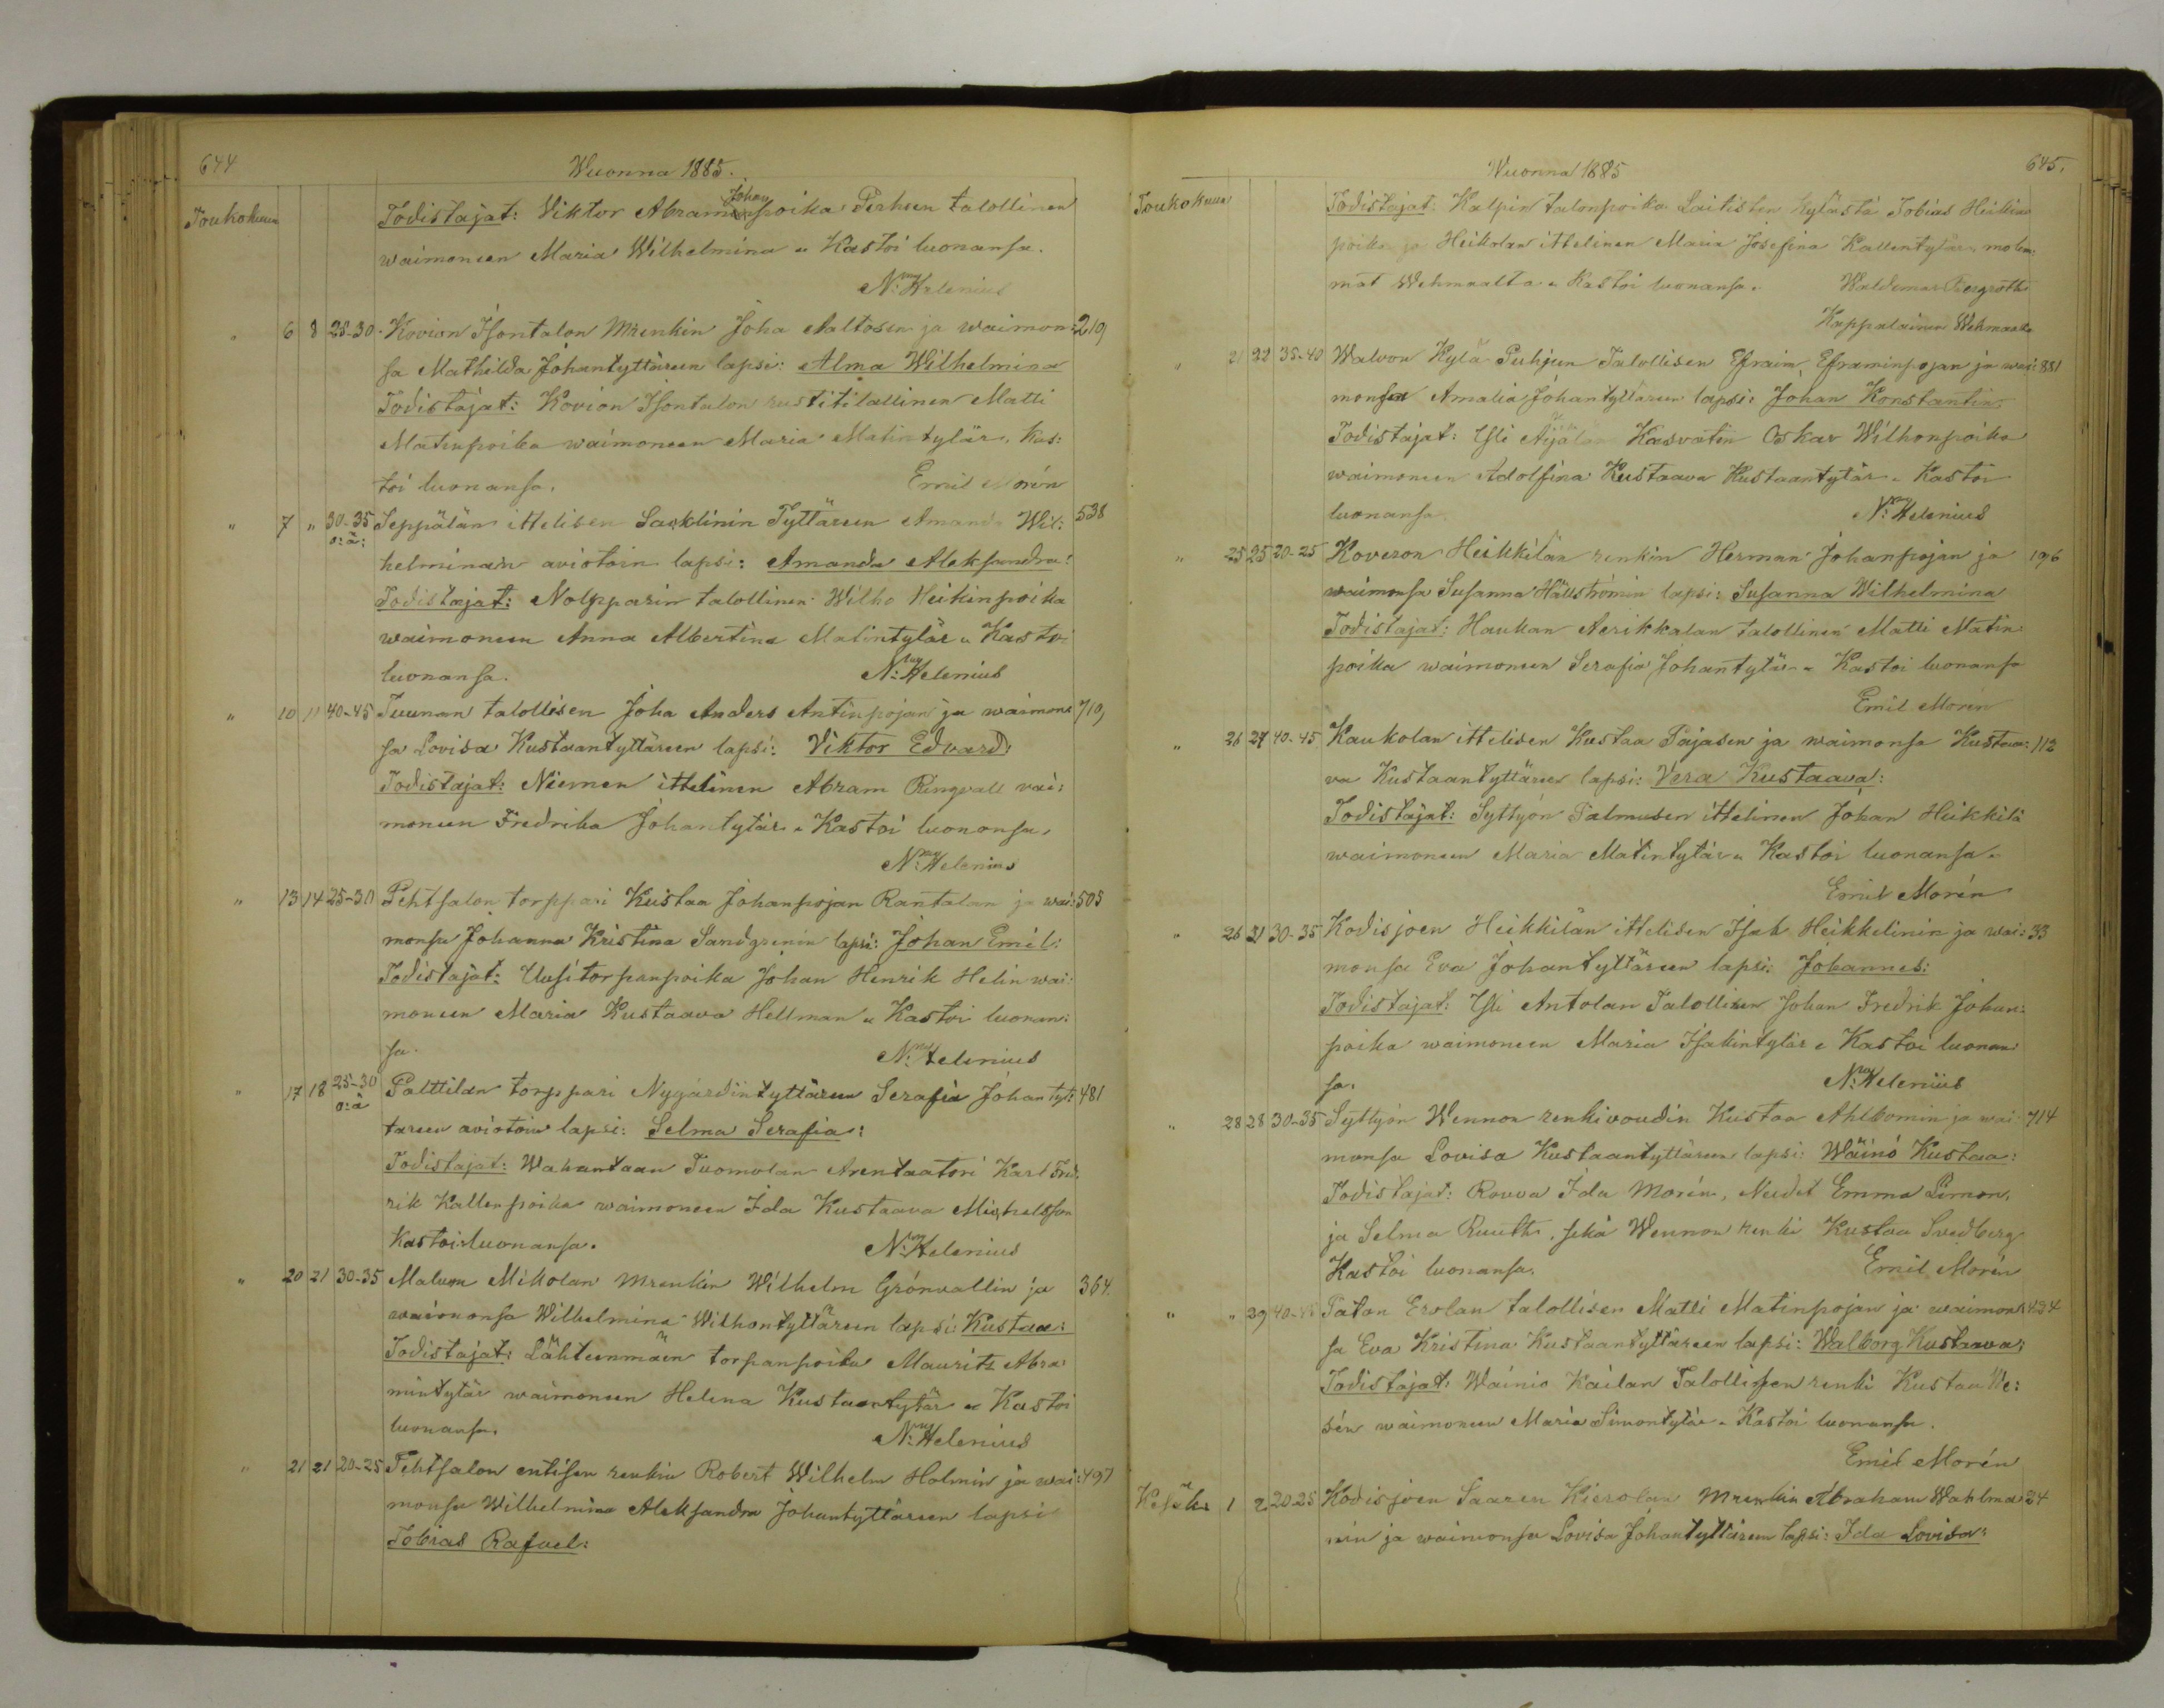 644
Wuonna 1885.
Toukokuun
Johan
Todistajat: Viktor Abraminpoika Perheen talollinen
waimoneen Maria Wilhelmina " Kastoi luonansa.
N: Helenius
" 6 8 25-30. Kovion Isontalon Mrenkin Joha Aaltosen ja waimon: 219
sa Mathilda Johantyttäreen lapsi: Alma Wilhelmina
Todistajat: Kovion Isontalon rustitilallinen Matti
Matinpoika waimoneen Maria Matintytär. Kas:
toi luonansa. Emil Morén
" 7 " 30-35 Seppälän ittelisen Sacklinin Tyttäreen Amanda Wil: 538
o: ä:
helminan aviotoin lapsi: Amanda Aleksandra:
Todistajat: Nolpparin talollinen Wilho Heikinpoika
waimoneen Anna Albertina Matintytär " Kastoi
luonansa. N: Helenius
" 10 11 40-45 Tuunan talollisen Joha Anders Antinpojan ja waimon: 710,
sa Lovisa Kustaantyttäreen lapsi: Viktor Edvard:
Todistajat: Niemen ittelinen Abram Ringvall vai:
moneen Fredrika Johantytär " Kastoi luononsa.
N: Helenius
" 13 14 25-30 Pehtsalon torppari Kustaa Johanpojan Rantalan ja wai: 505
monsa Johanna Kristina Sandgrenin lapsi: Johan Emil:
Todistajat: Uusitorpanpoika Johan Henrik Helin wai:
moneen Maria Kustaava Hellman " Kastoi luonan:
sa. N: Helenius
" 17 18 25-30 Palttilan torppari Nygårdintyttäreen Serafia Johantyt: 481
o: ä
täreen aviotoin lapsi: Selma Serafia:
Todistajat: Wahantaan Tuomolan Arentaatori Karl Fred:
rik Kallenpoika waimoneen Ida Kustaava Michelsson
Kastoi luonansa. N: Helenius
" 20 21 30-35 Malvon Mikolan Mrenkin Wilhelm Grönvallin ja 364.
waimonsa Wilhelmina Wilhontyttäreen lapsi: Kustaa:
Todistajat: Lähteenmäen torpanpoika Maurits Abra
mintytär waimoneen Helena Kustaantytär " Kastoi
luonansa. N: Helenius
" 21 21 20-25 Pehtsalon entisen renkin Robert Wilhelm Holmin ja wai: 497
monsa Wilhelmina Aleksandra Johantyttäreen lapsi
Tobias Rafael:
Wuonna 1885
645.
Toukokuun
Todistajat: Kalpin talonpoika Laitisten kylästä Tobias Heikin
poika ja Heikolan ittelinen Maria Josefina Kallentytär, molem:
mat Wehmaalta " Kastoi luonansa. Waldemar Bergroth
Kappalainen Wehmaalta
" 21 22 35-40 Walvon Kylä Puhjun Talollisen Efraim Eframinpojan ja wai: 881
monsa Amalia Johantyttäreen lapsi: Johan Konstantin:
Todistajat: Yli Äijälän Kasvatin Oskar Wilhonpoika
waimoneen Adolfina Kustaava Kustaantytär " Kastoi
luonansa. N: Helenius
" 25 25 20-25 Koveron Heikkilän renkin Herman Johanpojan ja 196
waimonsa Susanna Hällströmin lapsi: Susanna Wilhelmina
Todistajat: Haukan Aerikkalan talollinen Matti Matin
poika waimoneen Serafia Johantytär " Kastoi luonansa
Emil Morén
" 26 27 40-45 Kaukolan ittelisen Kustaa Pajasen ja waimonsa Kustaa: 112
va Kustaantyttäreen lapsi: Vera Kustaava:
Todistajat: Syttyön Palmusen ittelinen Johan Heikkilä
waimoneen Maria Matintytär " Kastoi luonansa "
Emil Morén
" 26 31 30-35 Kodisjoen Heikkilän ittelisen Isak Heikkelinin ja wai: 33
monsa Eva Johantyttäreen lapsi: Johannes:
Todistajat: Yli Antolan Talollisen Johan Fredrik Johan:
poika waimoneen Maria Isakintytär " Kastoi luonan:
sa. N: Helenius
" 28 28 30-35 Syttyön Wennon renkivoudin Kustaa Ahlbomin ja wai: 714
monsa Lovisa Kustaantyttäreen lapsi: Wäinö Kustaa:
Todistajat: Rouva Ida Morén, Neidet Emma Limon,
ja Selma Ruuth, sekä Wennon renki Kustaa Svedberg
Kastoi luonansa. Emil Morén
" " 29 40-45 Patan Erolan talollisen Matti Matinpojan ja waimon: 434
sa Eva Kristina Kustaantyttäreen lapsi: Walborg Kustaava:
Todistajat: Wäiniö Kailan Talollisen renki Kustaa We:
sén waimoneen Maria Simontytär " Kastoi luonansa.
Emil Morén
Kesäk: 1 2 20-25 Kodisjoen Saaren Kierolan Mrenkin Abraham Wahlma: 24
nin ja waimonsa Lovisa Johantyttäreen lapsi: Ida Lovisa: